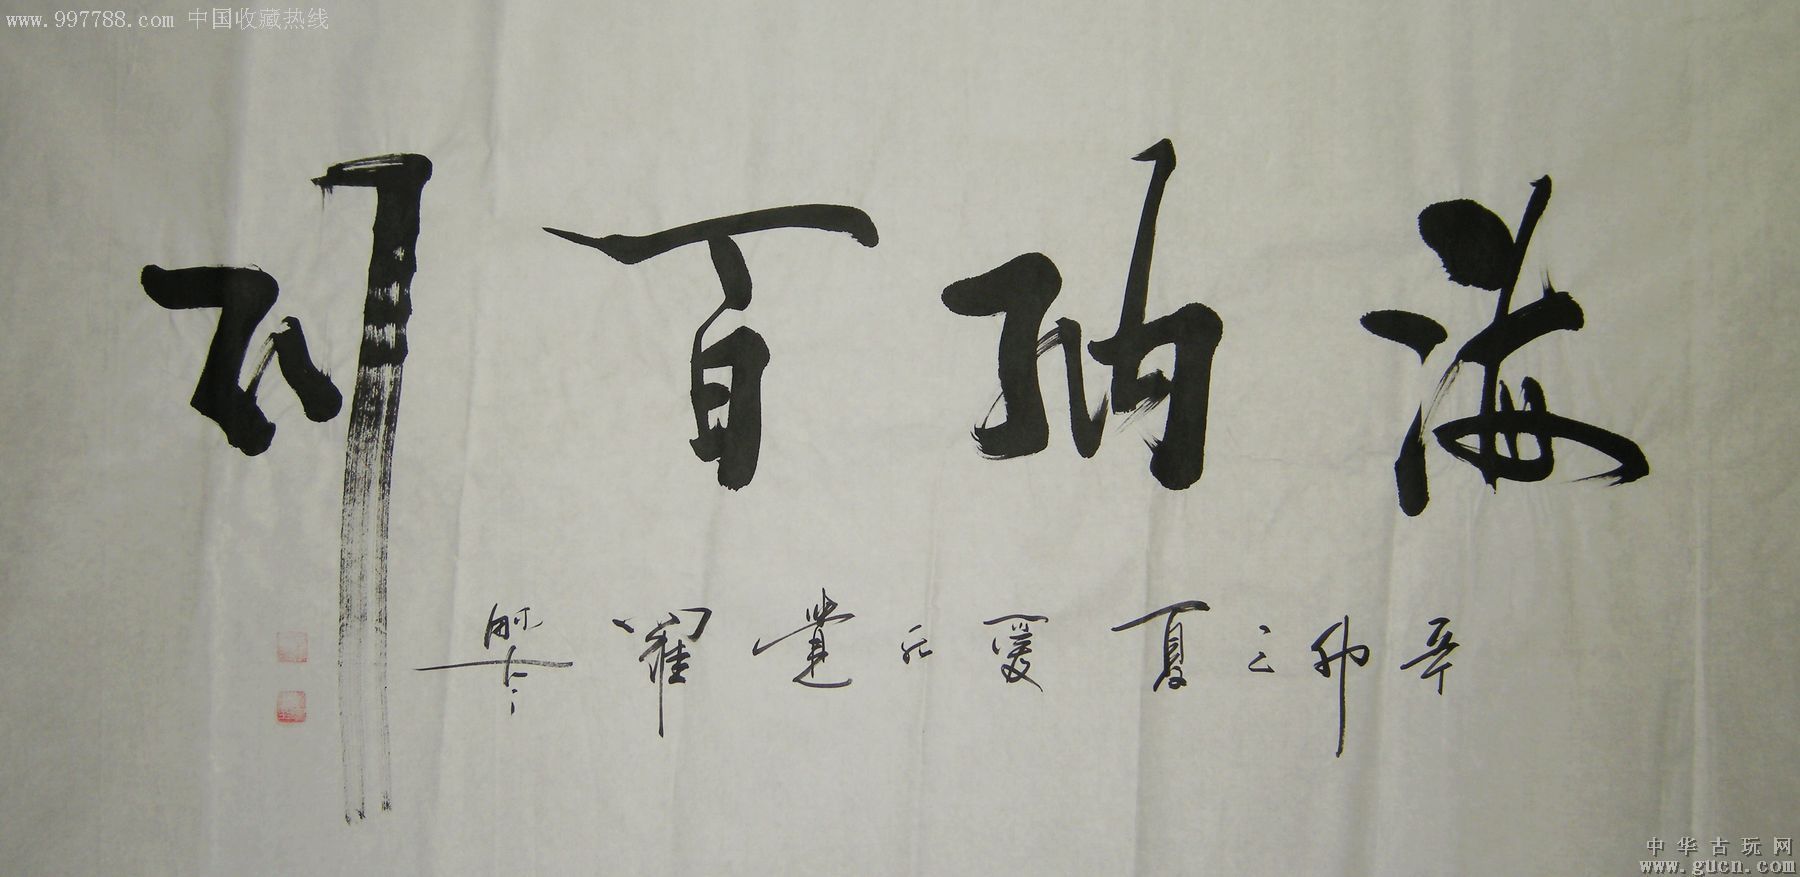 www.997788.com 中国收藏热线
海纳百川
辛卯之夏
中华古玩网
www.gucn.com